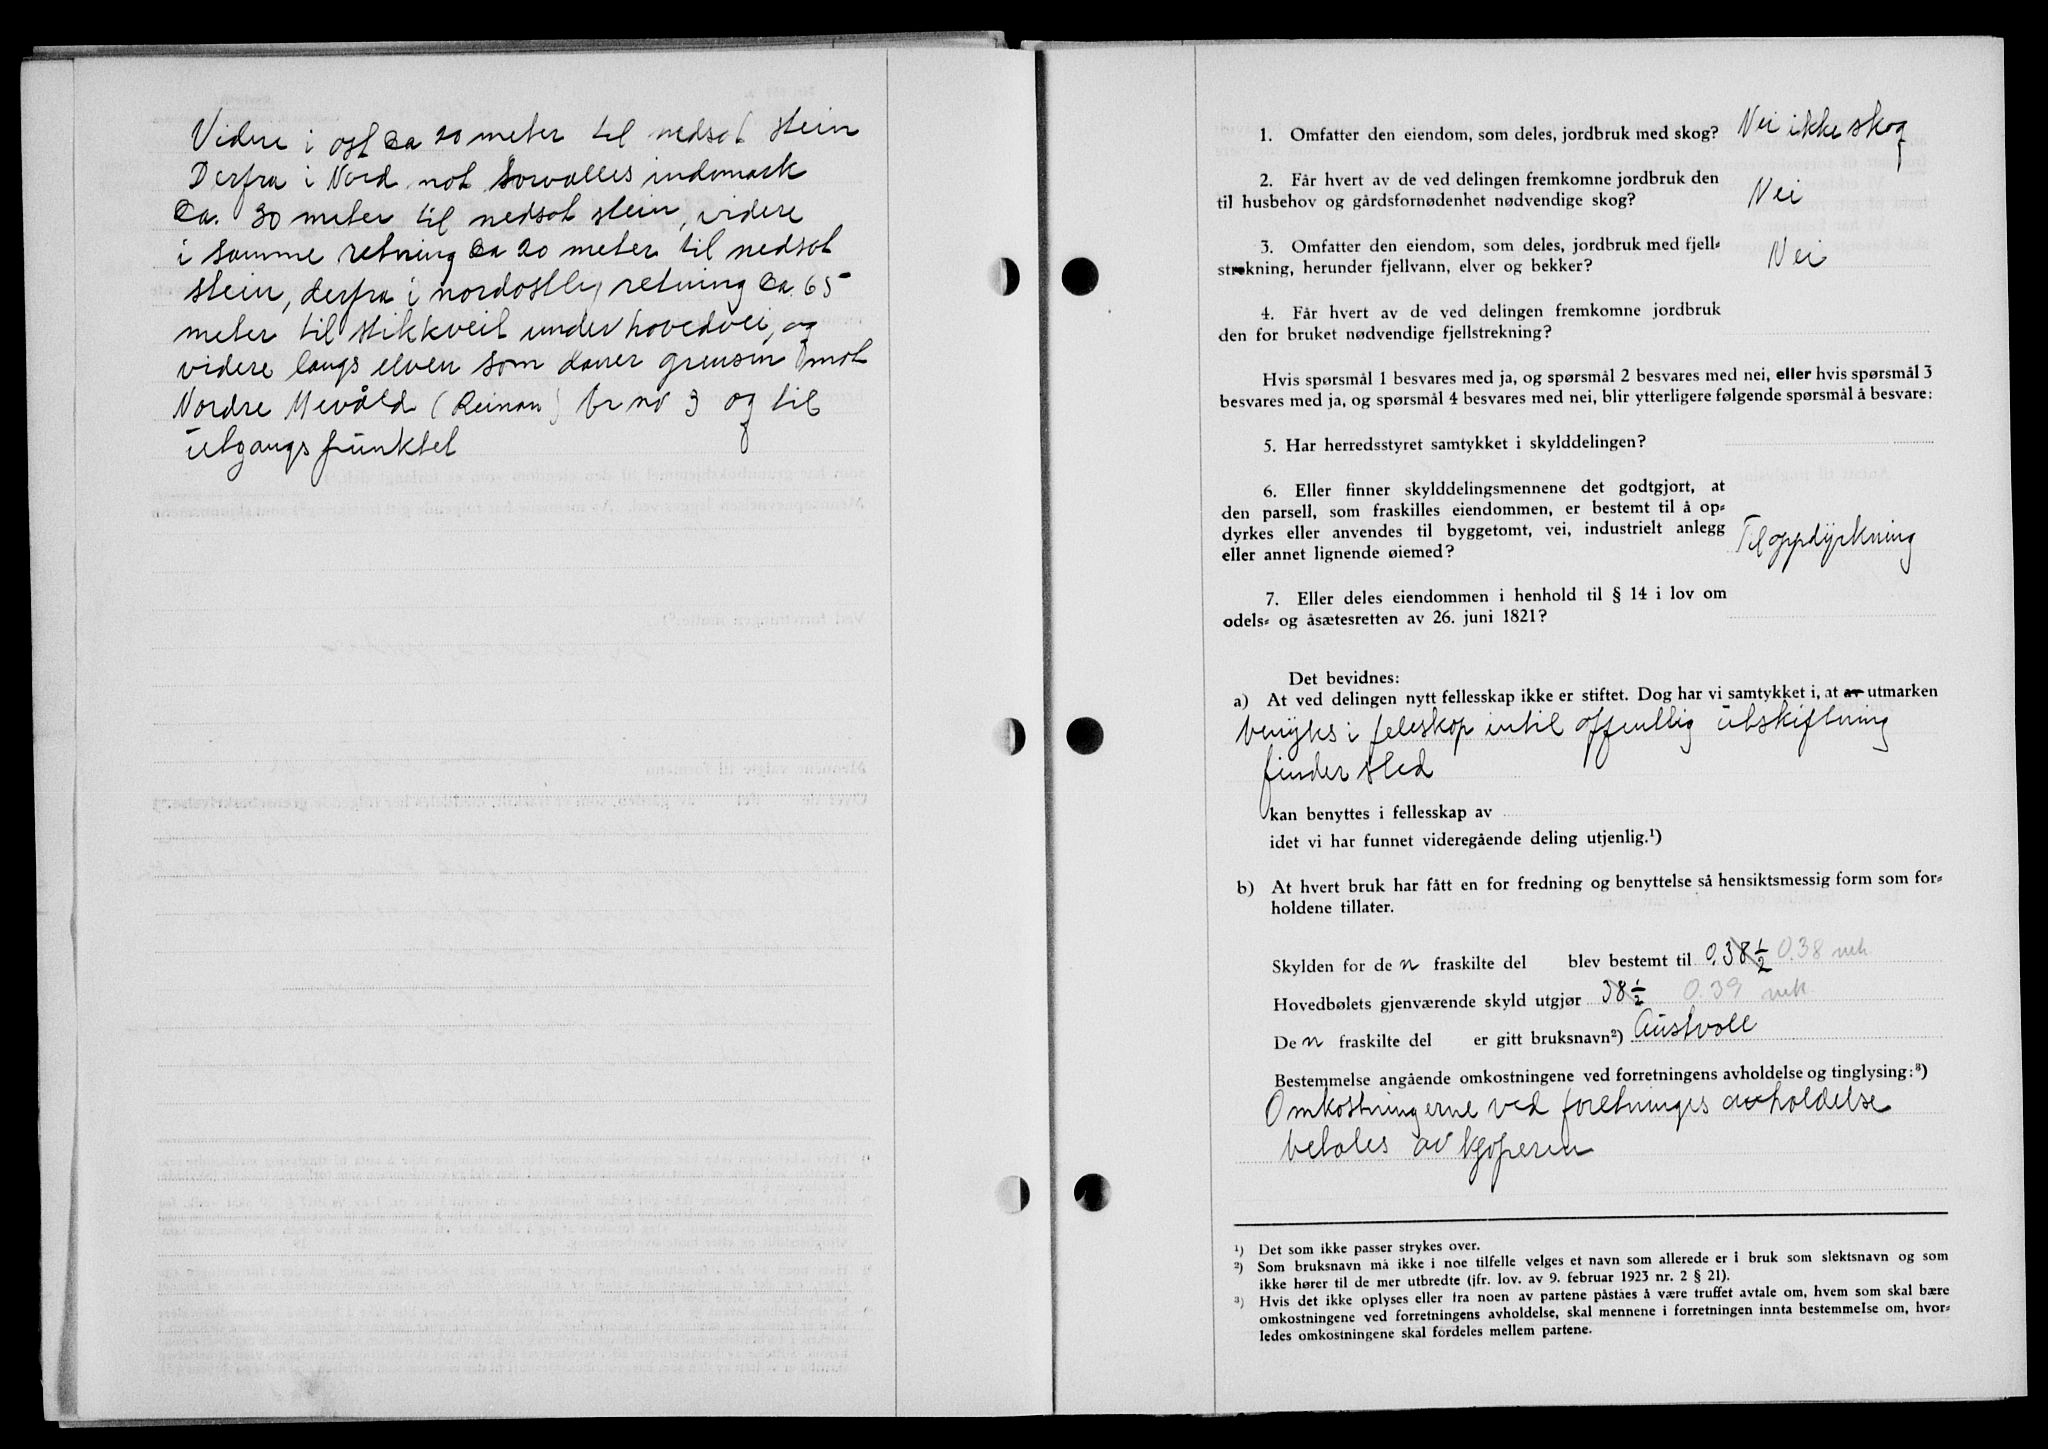 Videre i øst ca 20 meter til nedsat stein
Derfra i Nord mot Sorvolles indmark
ca. 30 meter til nedsat stein, videre
i samme retning ca 20 meter til nedsat
stein, derfra i nordostlig retning ca. 65
meter til stikkveit under hovedvei, og
videre langs elven som daner grensen mot
Nordre Mevåld (Reinan) br no 3 og til
utgangspunktet
1. Omfatter den eiendom, som deles, jordbruk med skog? Nei ikke skog
2. Får hvert av de ved delingen fremkomne jordbruk den
til husbehov og gårdsfornødenhet nødvendige skog? Nei
3. Omfatter den eiendom, som deles, jordbruk med fjell-
strekning, herunder fjellvann, elver og bekker? Nei
4. Får hvert av de ved delingen fremkomne jordbruk
den for bruket nødvendige fjellstrekning?
Hvis spørsmål 1 besvares med ja, og spørsmål 2 besvares med nei, eller hvis spørsmål 3
besvares med ja, og spørsmål 4 besvares med nei, blir ytterligere følgende spørsmål å besvare:
5. Har herredsstyret samtykket i skylddelingen?
6. Eller finner skylddelingsmennene det godtgjort, at
den parsell, som fraskilles eiendommen, er bestemt til å op-
dyrkes eller anvendes til byggetomt, vei, industrielt anlegg
eller annet lignende øiemed? Til oppdyrkning
7. Eller deles eiendommen i henhold til § 14 i lov om
odels- og åsætesretten av 26. juni 1821?
Det bevidnes:
a) At ved delingen nytt fellesskap ikke er stiftet. Dog har vi samtykket i, at av utmarken
benytes i feleskap intil offentlig utskiftning
finder sted
kan benyttes i fellesskap av
idet vi har funnet videregående deling utjenlig.¹)
b) At hvert bruk har fått en for fredning og benyttelse så hensiktsmessig form som for-
holdene tillater.
Skylden for de n fraskilte del blev bestemt til 0.38 1/2 0.38 mrk
Hovedbølets gjenværende skyld utgjør 38 1/2 0.39 mrk
De n fraskilte del er gitt bruksnavn²) Austvoll
Bestemmelse angående omkostningene ved forretningens avholdelse og tinglysing:³)
Omkostningerne ved foretninges avholdelse
betales av kjøperen
¹) Det som ikke passer strykes over.
²) Som bruksnavn må ikke i noe tilfelle velges et navn som allerede er i bruk som slektsnavn og som
ikke hører til de mer utbredte (jfr. lov. av 9. februar 1923 nr. 2 § 21).
³) Hvis det ikke oplyses eller fra noen av partene påståes å være truffet avtale om, hvem som skal bære
omkostningene ved forretningens avholdelse, skal mennene i forretningen innta bestemmelse om, hvor-
ledes omkostningene skal fordeles mellem partene.